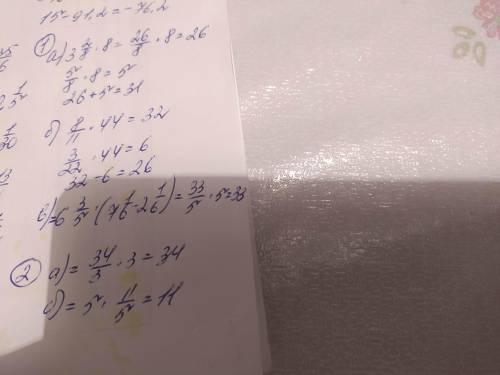 15 - 91,2 = -76,2
① а) 3 2/8 · 8 = 26/8 · 8 = 26
5/8 · 8 = 5
26 + 5 = 31
б) 8/11 · 44 = 32
3/22 · 44 = 6
32 - 6 = 26
в) = 6 3/5 · (7 1/6 - 2 1/6) = 33/5 · 5 = 33
② а) = 34/3 · 3 = 34
б) = 5 · 11/5 = 11
1/5
1/30